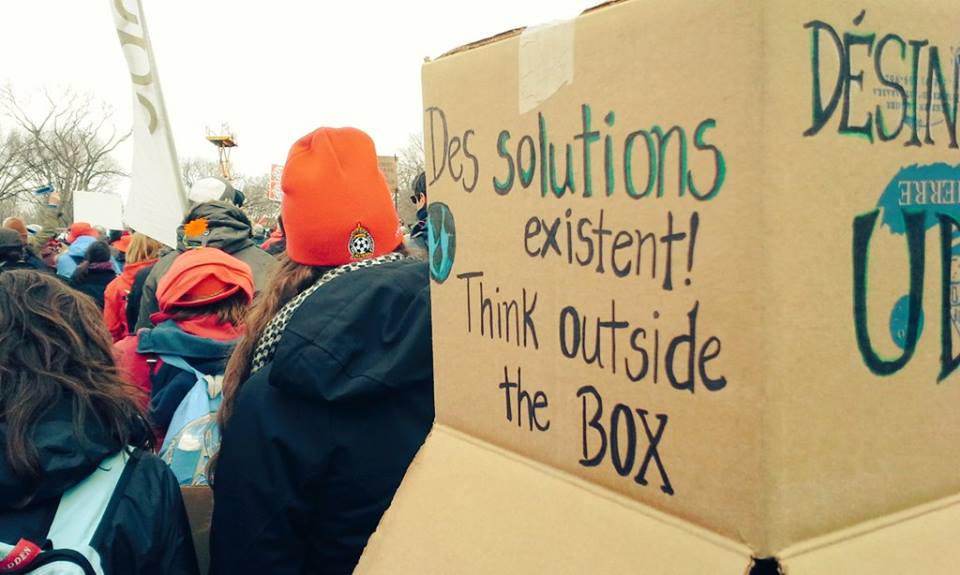 Des solutions
existent!
Think outside
the BOX
DÉSIN
ERRE
DEN